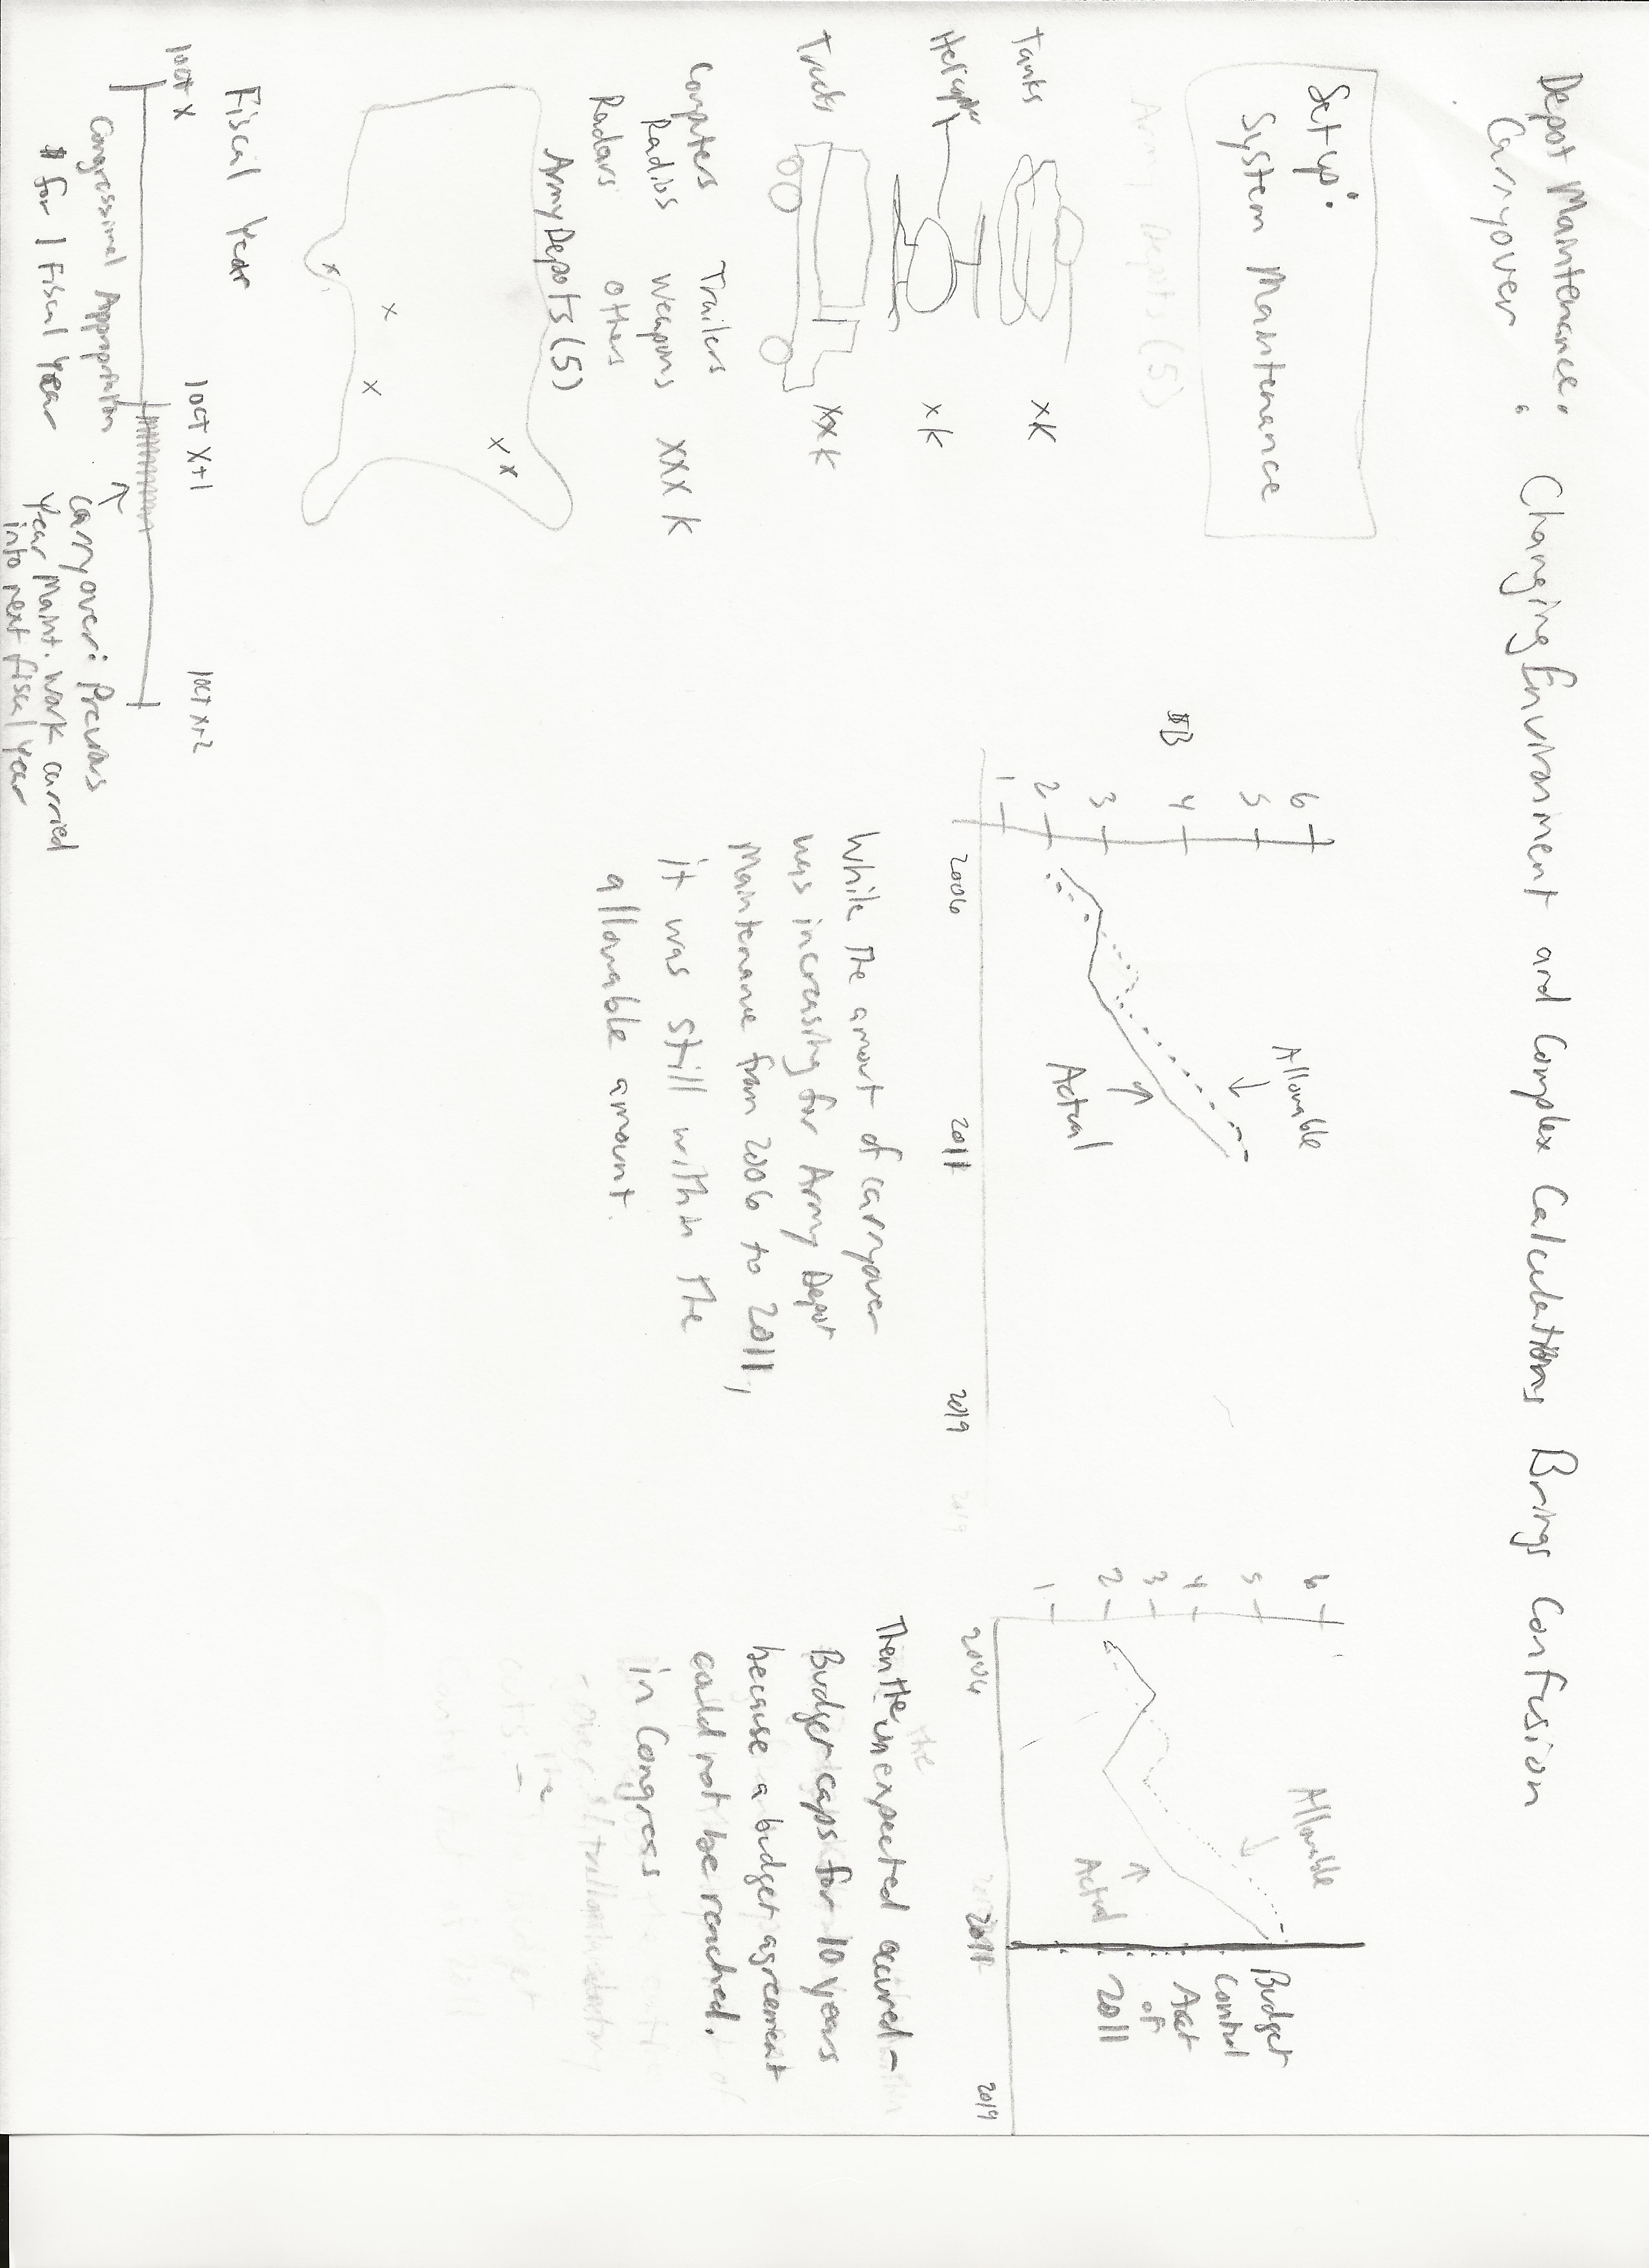 Depot Maintenance:
Carryover :
Changing Environment and Complex Calculations Brings Confusion
Set up:
System Maintenance
Army Depots (5)
Tanks xK
Helicopter xK
Trucks xxK
Computers Trailers
Radios Weapons XXX K
Radars Others
Army Depots (5)
x x
x
x
x
Fiscal Year
1 OCT X
1 OCT X+1
1 OCT X+2
Congressional Appropriation
$ for 1 Fiscal Year
Carryover: Previous
Year Maint. Work carried
into next fiscal year
6
5
$B 4
3
2
1
Allowable
Actual
2006 2011 2019
2019
While the amount of carryover
was increasing for Army Depot
Maintenance from 2006 to 2011,
it was still within the
allowable amount.
6
5
4
3
2
1
Allowable
Actual
Budget
Control
Act
of
2011
2006 2011 2019
the
Then the unexpected occured -
Budget caps for 10 years
because a budget agreement
could not be reached.
in Congress
- over $1 trillion
the
cuts. - The Budget
Control Act of 2011